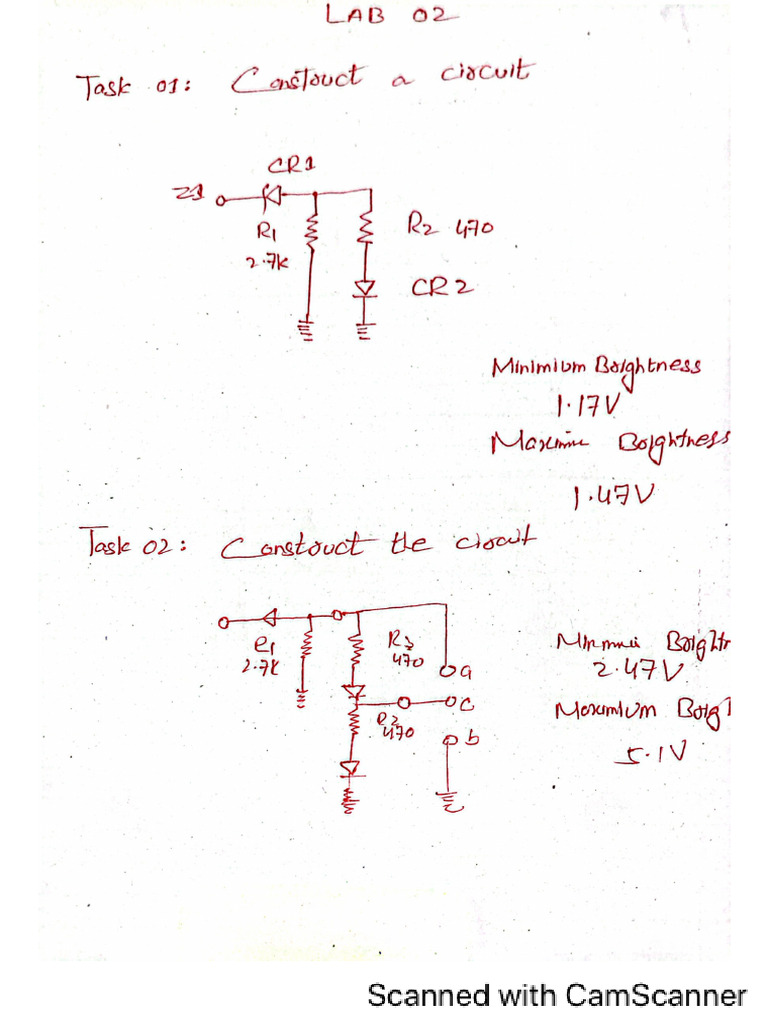 LAB 02
Task 01: Construct a circuit
CR1
Z1
R1
2.7K
R2 470
CR2
Minimium Brightness
1.17V
Maximu Brightness
1.47V
Task 02: Construct the circuit
R1
2.7K
R3
470
a
c
R2
470
b
2.47V
Maximium Brig
5.1V
Scanned with CamScanner